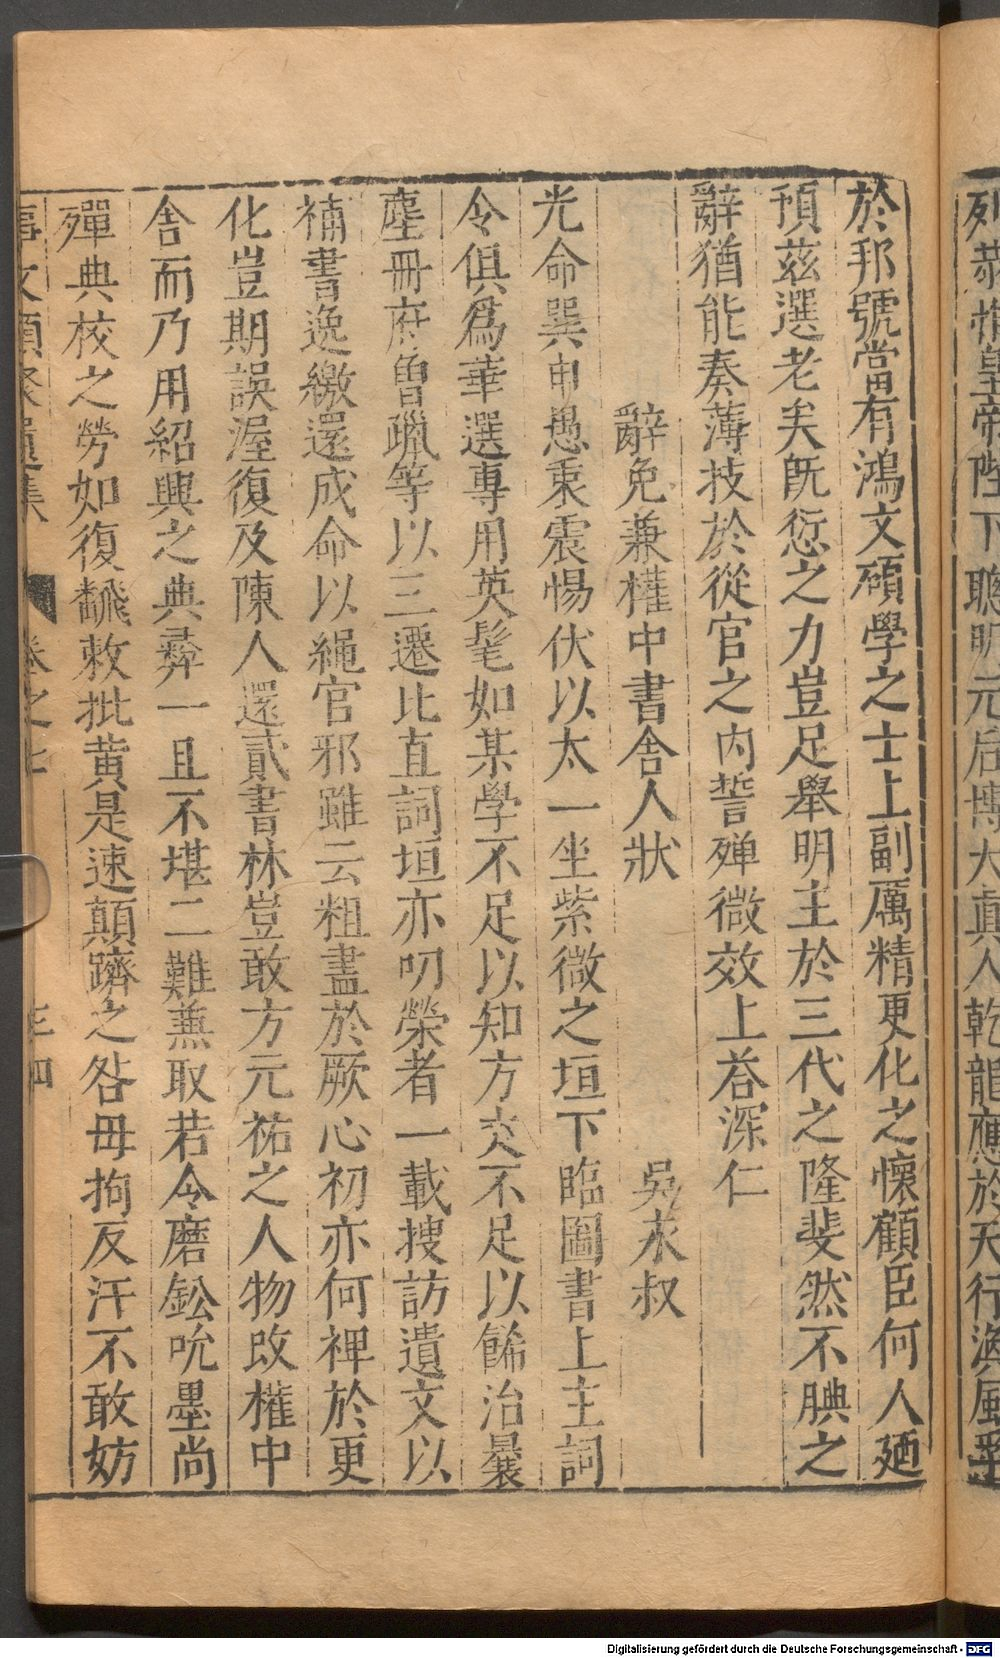 列恭惟皇帝陛下聰明元后博大眞人乾龍應於天行渙風
於邦號當有鴻文碩學之士上副厲精更化之懷顧臣何人廼
預茲選老矣旣愆之力豈足舉明主於三代之隆斐然不腆之
辭猶能奏薄技於從官之內誓殫微效上荅深仁
辭免兼權中書舍人狀 吳泳叔
光命巽申愚衷震惕伏以太一坐紫微之垣下臨圖書上主詞
令俱爲華選專用英髦如某學不足以知方文不足以餙治曩
塵冊府魯躐等以三遷比直詞垣亦叨榮者一載捜訪遺文以
補書逸繳還成命以繩官邪雖云粗盡於厥心初亦何裨於更
化豈期誤渥復及陳人還貳書林豈敢方元祐之人物攺權中
舍而乃用紹興之典彛一且不堪二難蒹取若令磨鈆吮墨尚
殫典校之勞如復敕批黄是速顛躋之咎毋拘反汗不敢妨
事文類聚遺集 卷之七 三四
Digitalisierung gefördert durch die Deutsche Forschungsgemeinschaft - DFG